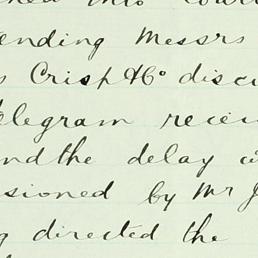 ending Messrs
Crisp & Co discu
elegram recei
and the delay
sioned by Mr J
directed the